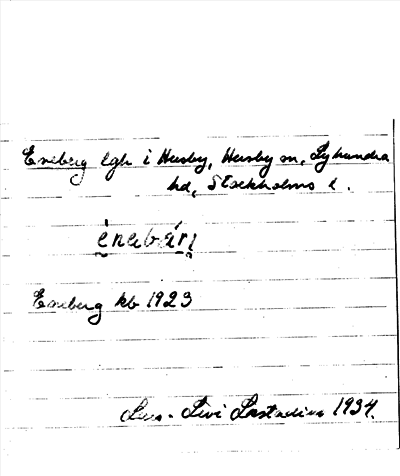 Eneberg lgh i Husby, Husby sn, Lyhundra
hd, Stockholms l.
énabärj
Eneberg kb 1923
Lars-Levi Læstadius 1934.